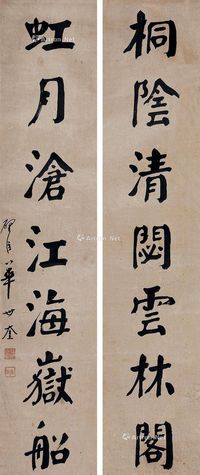 桐陰清閟雲林閣
虹月滄江海嶽船
華世奎